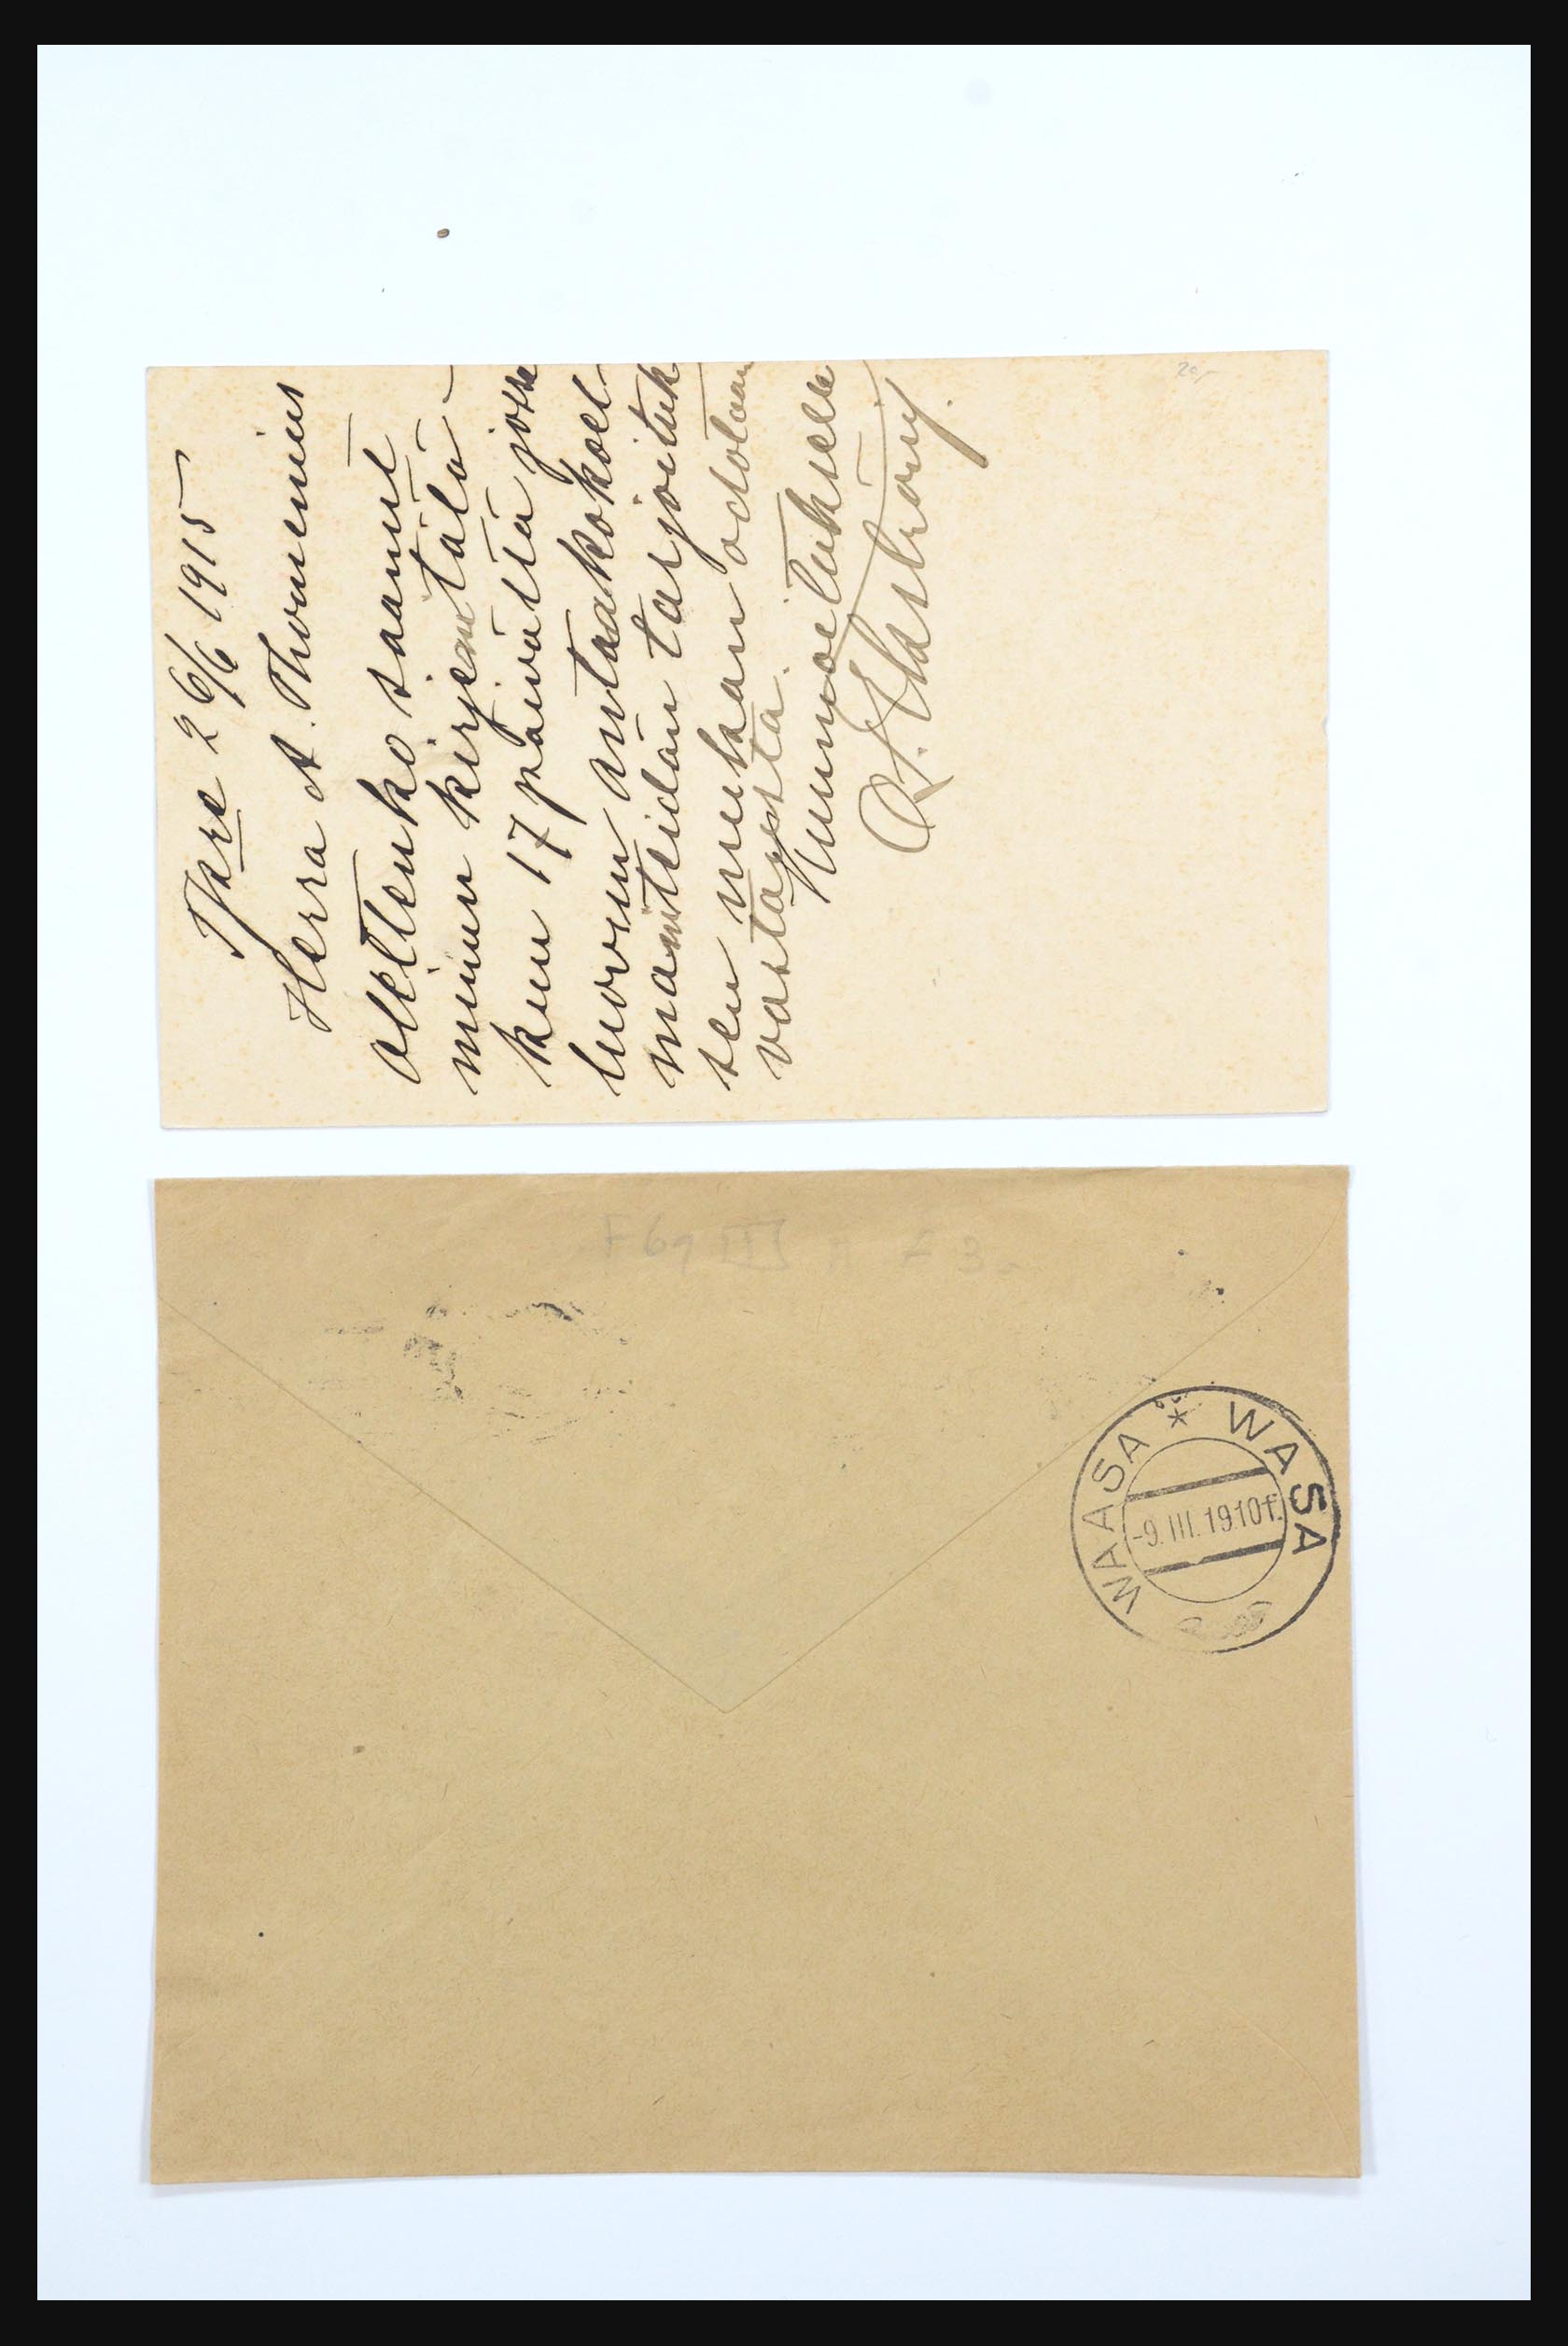 Tkre 26/6 1915
Herra A. Thomenius
olettenko saanut
minun kirjeeni tälä
kun 17 päivästä jossa
luvin antaa kokoel-
mani teidän tarjoituk
sen mukaan odotaan
vastausta.
Kunnioituksella
20,-
F 69 III A F 3,-
WAASA * WASA
-9.III.1910 f.